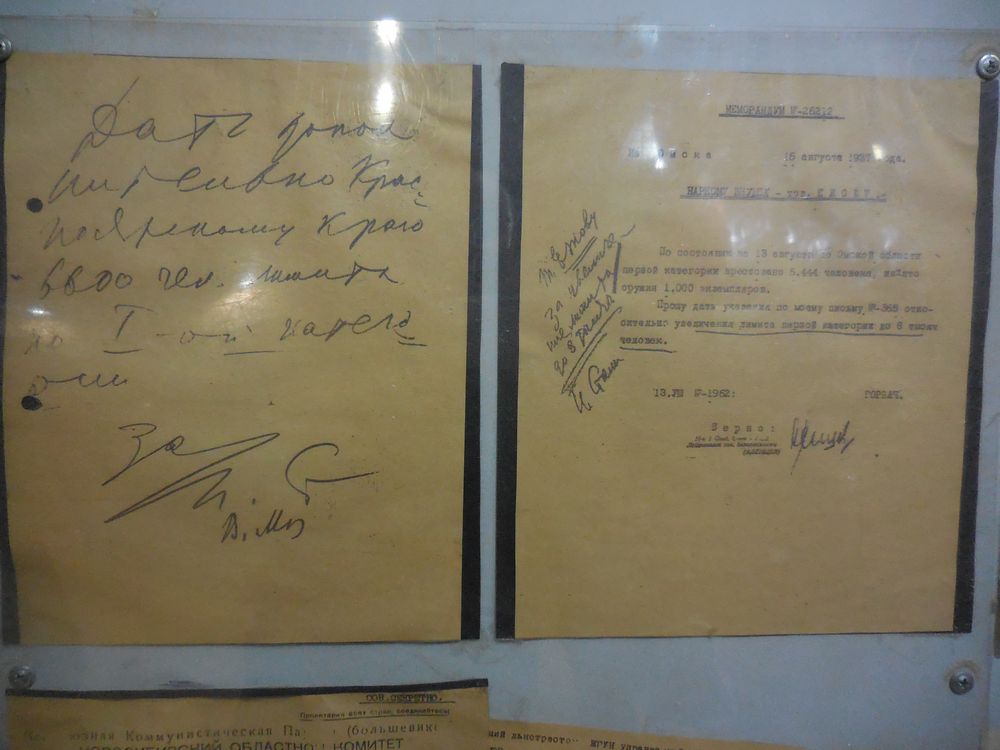 Дать допол
нительно Крас-
ноярскому краю
6600 чел. лимита
по I-ой катего
рии
За
И. Ст
В. Мо
МЕМОРАНДУМ №-26212
Из Омска 15 августа 1937 года.
НАРКОМУ ВНУДЕЛ - тов. ЕЖОВУ.-
По состоянию на 13 августа по Омской области
первой категории арестовано 5.444 человека, из'ято
оружия 1.000 экземпляров.
Прошу дать указания по моему письму №-365 отно-
сительно увеличения лимита первой категории до 8 тысяч
человек.
13.VIII №-1962: ГОРБАЧ.
Верно:
т. Ежову
За увеличе
ние лимита
до 8 тысяч
И. Сталин
СОВ.СЕКРЕТНО.
Пролетарии всех стран, соединяйтесь!
Коммунистическая Па (большевик
НОВОСИБИРСКИЙ ОБЛАСТНОЙ КОМИТЕТ